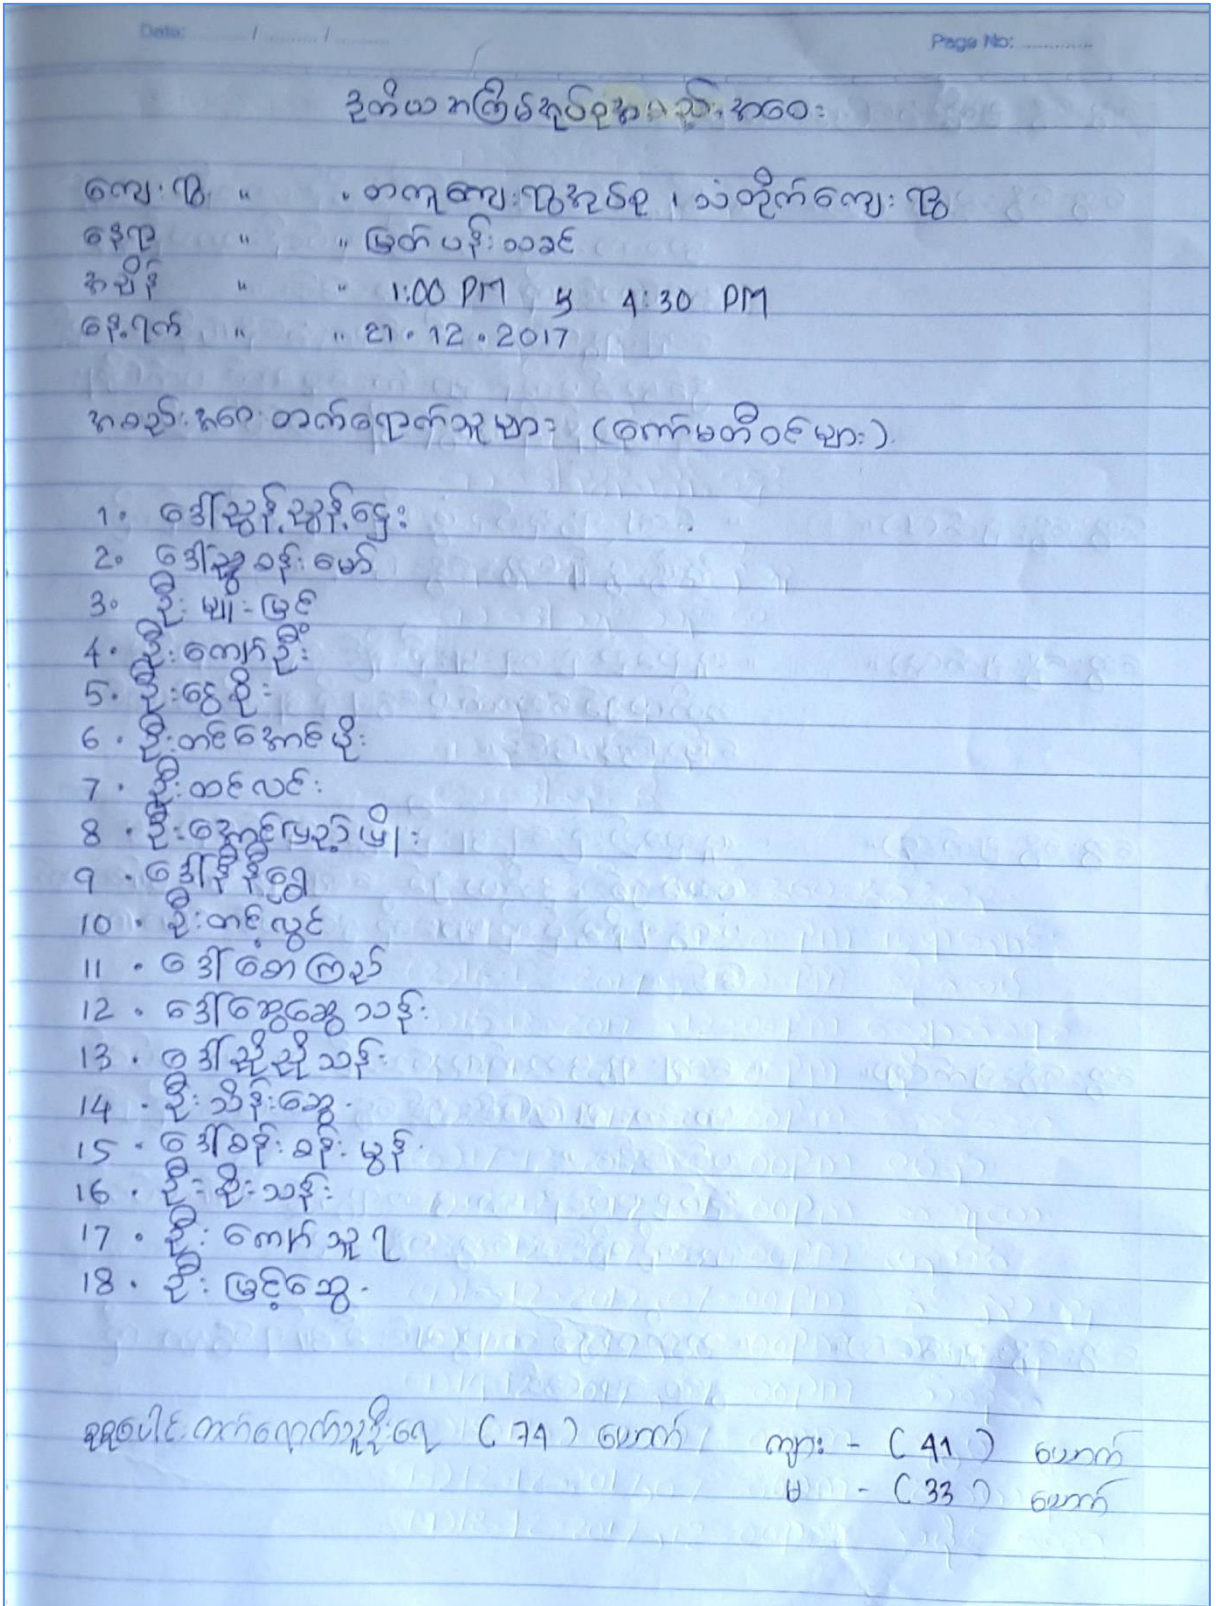 Date: ......... / ......... / .........
Page No: .............
ဒုတိယအကြိမ်အုပ်စုအစည်းအဝေး
ကျေးရွာ " " တကူကျေးရွာအုပ်စု ၊ သံတိုက်ကျေးရွာ
နေရာ " " မြတ်ပန်းသခင်
အချိန် " " 1:00 PM မှ 4:30 PM
နေ့ရက် " " 21.12.2017
အစည်းအဝေးတက်ရောက်သူများ (ကော်မတီဝင်များ)
1. ဒေါ်ညွန့်ညွန့်ဌေး
2. ဒေါ်ညွန့်စန်းမော်
3. ဦးမျိုးမြင့်
4. ဦးကျော်ဦး
5. ဦးငွေစိုး
6. ဦးတင်အောင်မိုး
7. ဦးထင်လင်း
8. ဦးအောင်မြည့်ဖြိုး
9. ဒေါ်နီနီရွှေ
10. ဦးတင့်လွင်
11. ဒေါ်စောကြည်
12. ဒေါ်ဆွေဆွေသန်း
13. ဒေါ်ညိုညိုသန်း
14. ဦးသိန်းဆွေ.
15. ဒေါ်စန်းစန်းမွန်
16. ဦးစိုးသန်း
17. ဦးကျော်သူရ
18. ဦးမြင့်ဆွေ.
စုစုပေါင်းတက်ရောက်သူဦးရေ (74) ယောက် ကျား - (41) ယောက်
မ - (33) ယောက်